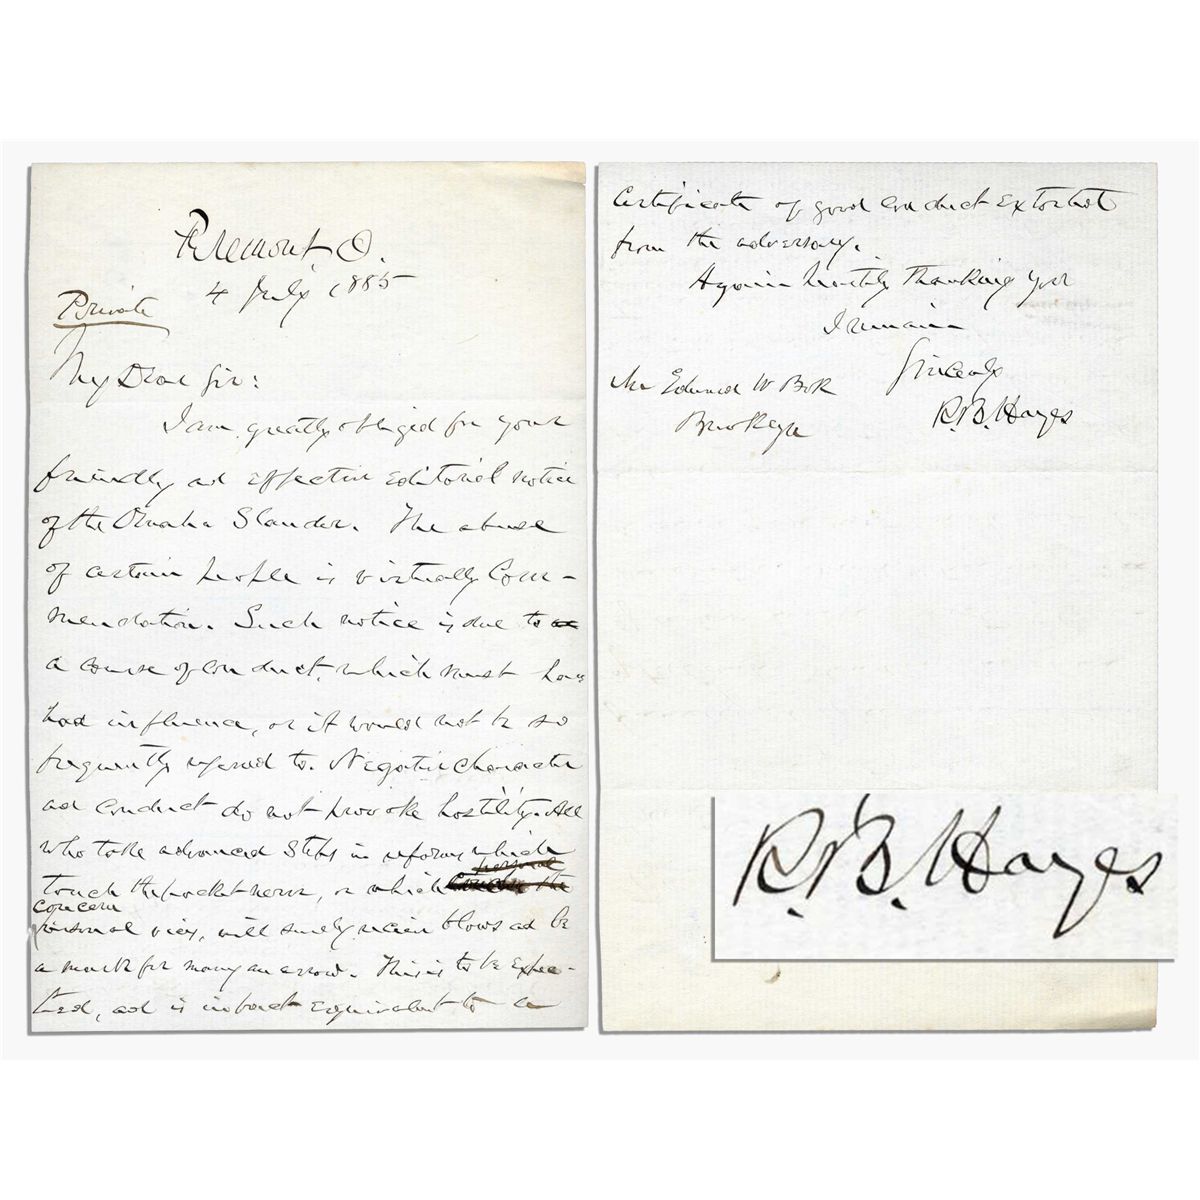 Fremont O.
4 July 1885
Private
My Dear Sir:
I am greatly obliged for your
friendly and effective editorial notice
of the Omaha Slander. The abuse
of certain people is virtually Com-
mendation. Such notice is due to
a course of conduct, which must have
had influence, or it would not be so
frequently referred to. Negative character
and conduct do not provoke hostility. All
who take advanced steps in reforms which
personal
touch the pocket nerve, or which concern the
concern
personal vices, will surely receive blows and be
a mark for many an arrow. This is to be expec-
ted, and is in fact equivalent to a
Certificate of good conduct extorted
from the adversary.
Again heartily thanking you
I remain
Sincerely
R.B. Hayes
Mr Edward W Bok
Brooklyn
R.B. Hayes